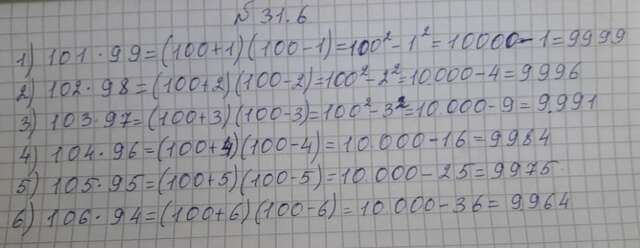 № 31.6
1) 101 · 99 = (100+1)(100-1) = 100² - 1² = 10000 - 1 = 9999
2) 102 · 98 = (100+2)(100-2) = 100² - 2² = 10.000 - 4 = 9996
3) 103 · 97 = (100+3)(100-3) = 100² - 3² = 10.000 - 9 = 9.991
4) 104 · 96 = (100+4)(100-4) = 10.000 - 16 = 9984
5) 105 · 95 = (100+5)(100-5) = 10.000 - 25 = 9975
6) 106 · 94 = (100+6)(100-6) = 10.000 - 36 = 9.964